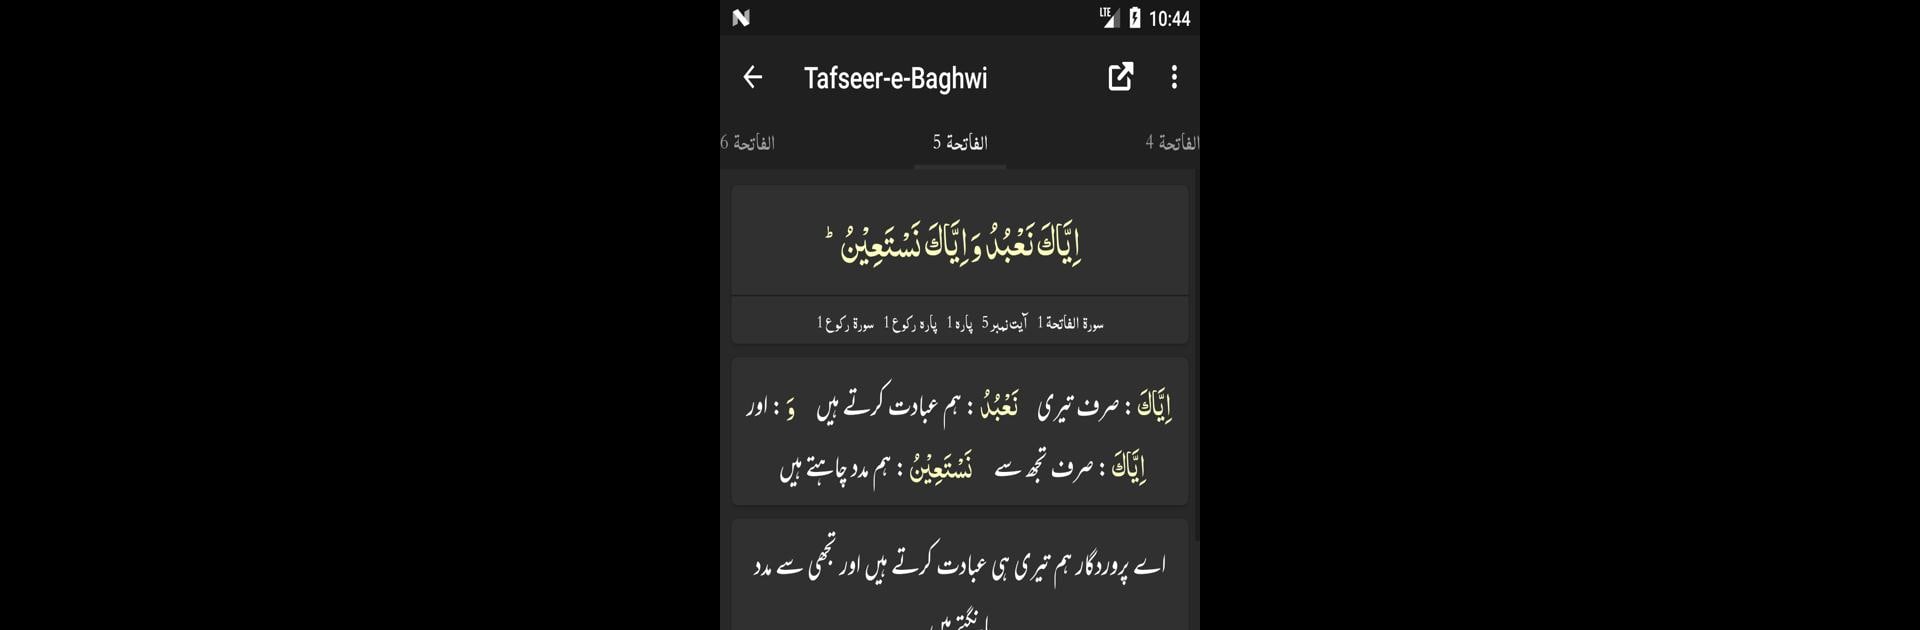 LTE 10:44
Tafseer-e-Baghwi
الفاتحة 4 الفاتحة 5 الفاتحة 6
اِيَّاكَ نَعْبُدُ وَاِيَّاكَ نَسْتَعِيْنُ ؕ
سورۃ الفاتحة 1 آیت نمبر 5 پارہ 1 پارہ رکوع 1 سورۃ رکوع 1
اِيَّاكَ : صرف تیری نَعْبُدُ : ہم عبادت کرتے ہیں وَ : اور
اِيَّاكَ : صرف تجھ سے نَسْتَعِيْنُ : ہم مدد چاہتے ہیں
اے پروردگار ہم تیری ہی عبادت کرتے ہیں اور تجھی سے مدد
مانگتے ہیں